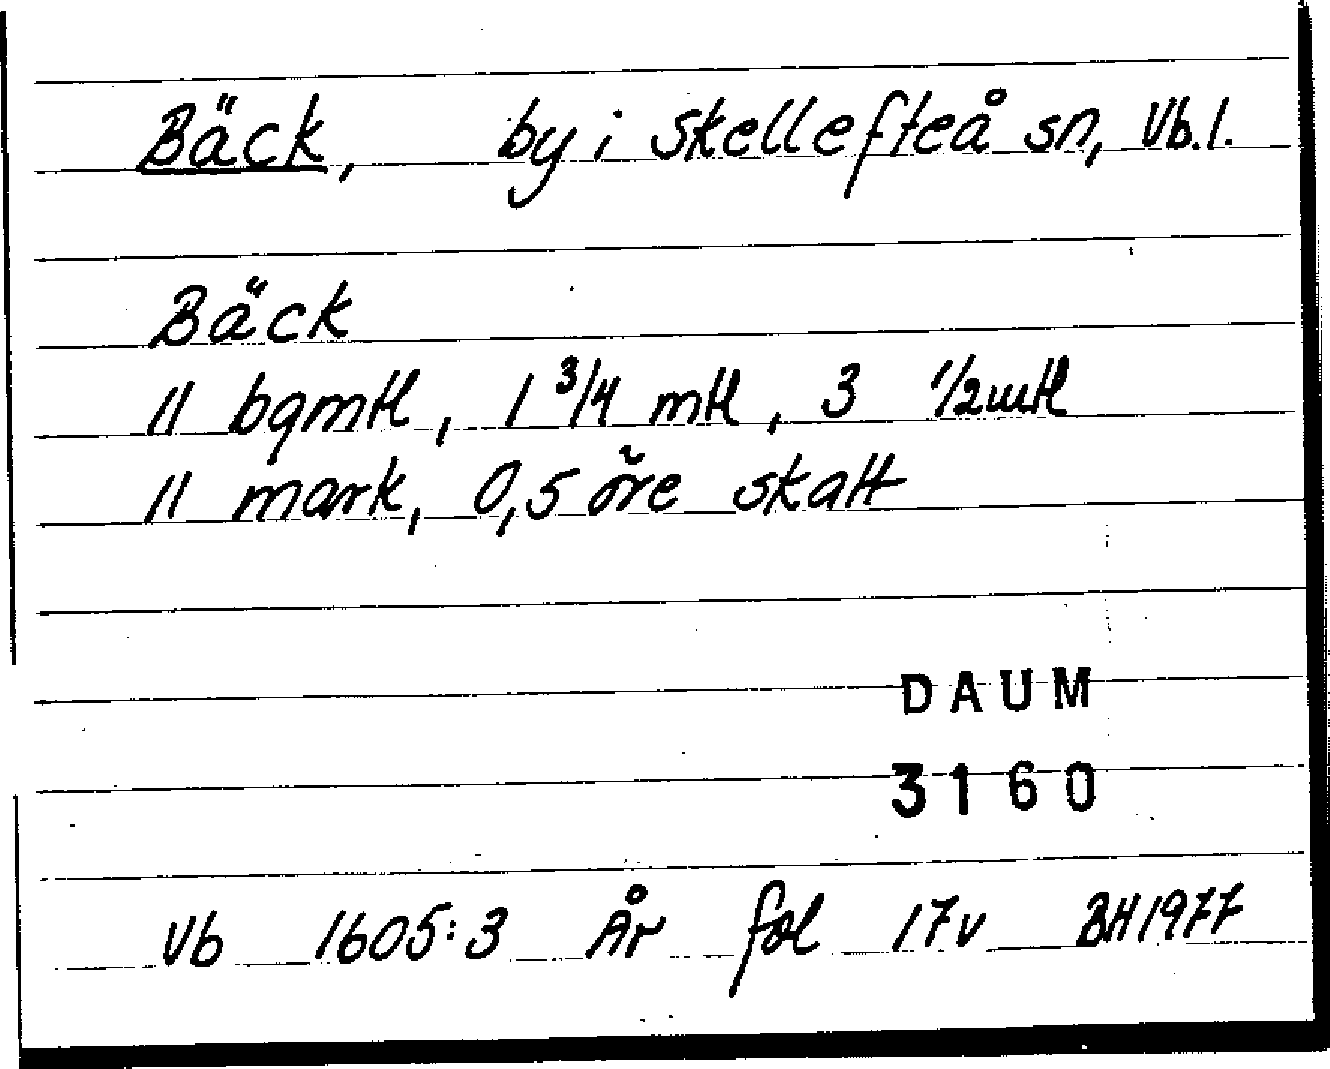 Bäck, by i Skellefteå sn, Vb.l.
Bäck
11 bgmtl, 1 3/4 mtl, 3 1/2mtl
11 mark, 0,5 öre skatt
DAUM
3160
Vb 1605:3 År fol 17v BH1977